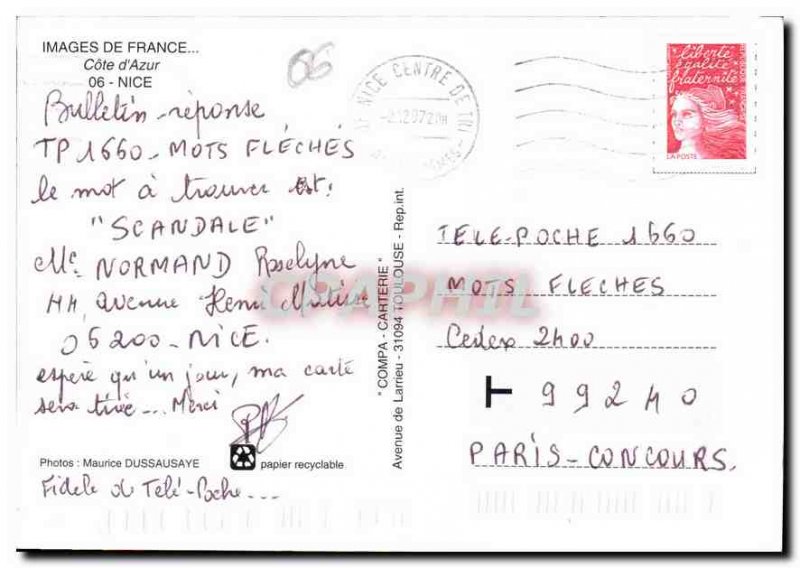 IMAGES DE FRANCE...
Côte d'Azur
06 - NICE
06
Bulletin-réponse
TP 1660- MOTS FLÉCHÉS
le mot à trouver est:
"SCANDALE"
Me NORMAND Roselyne
44, avenue Henri Matisse
06200-NICE.
espère qu'un jour, ma carte
sera tirée... Merci
Photos : Maurice DUSSAUSAYE
papier recyclable
Fidèle de Télé-Poche...
" COMPA - CARTERIE "
Avenue de Larrieu - 31094 TOULOUSE - Rep.int.
NICE CENTRE DE TRI
liberté
égalité
fraternité
LA POSTE
TELE-POCHE 1660
MOTS FLECHES
Cedex 2400
T 99240
PARIS-CONCOURS.
CPAPHIL